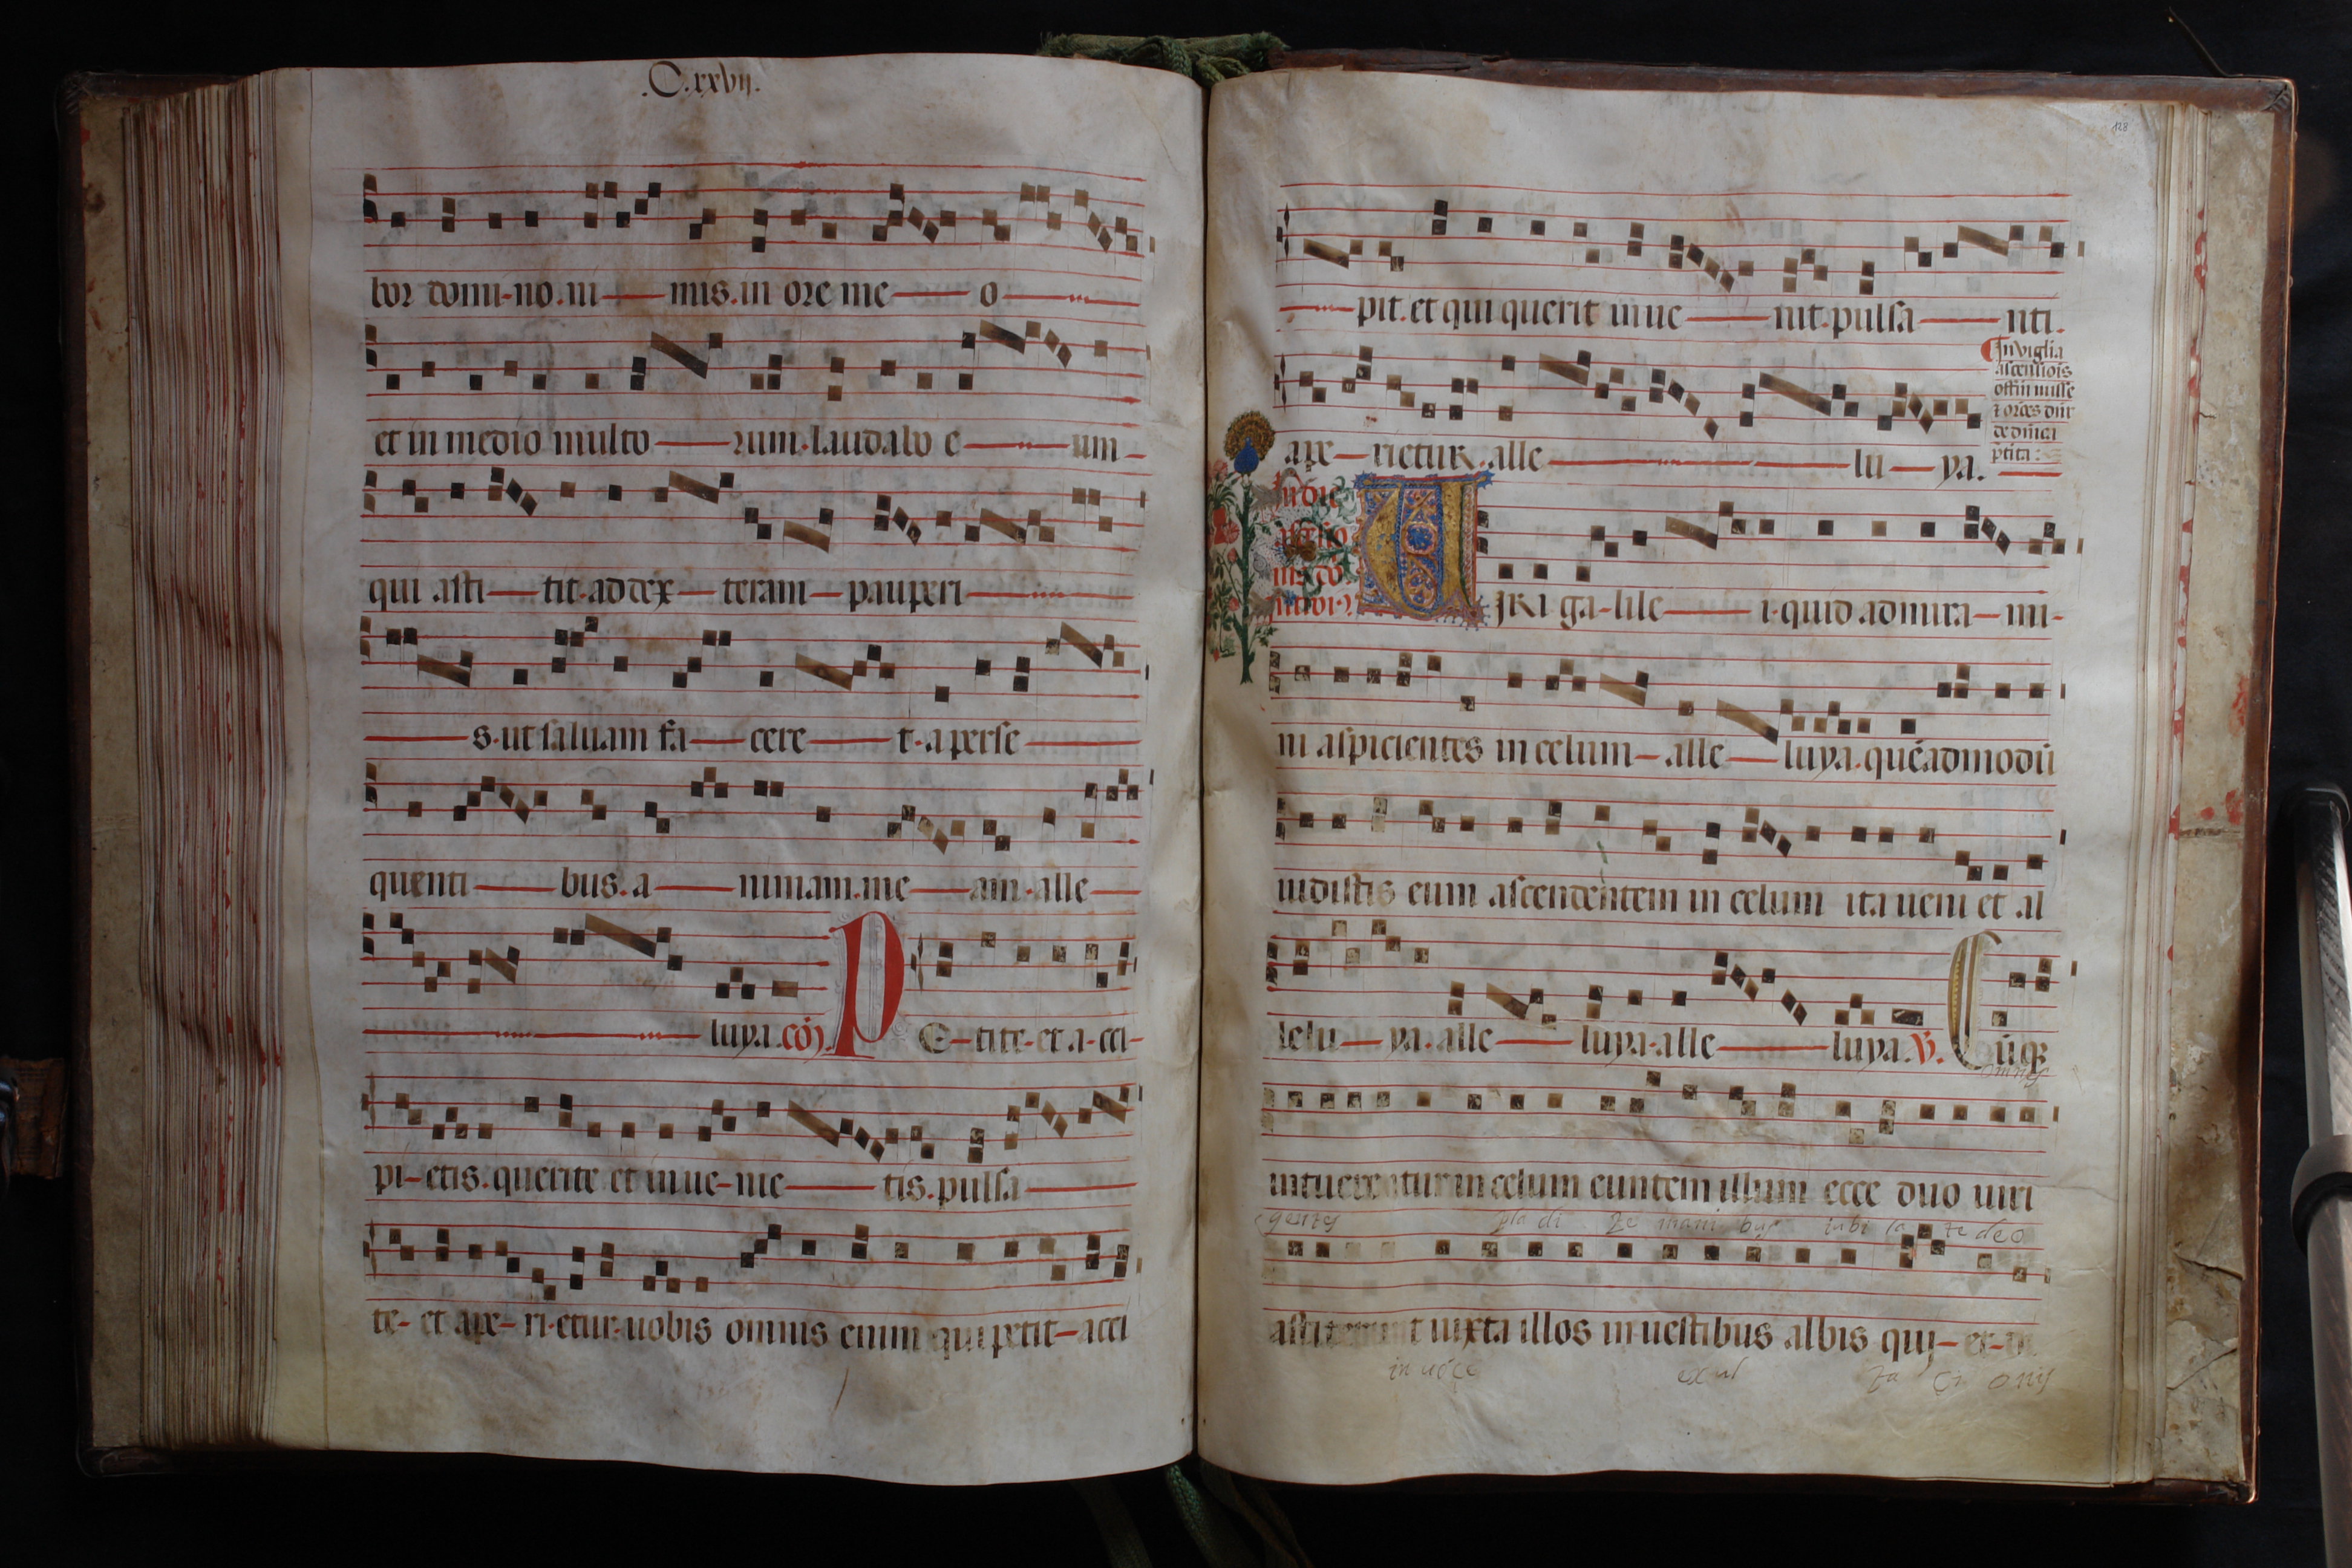 .C.xxvij.
bor domi-no.ni—mis.in ore me—o—
et in medio multo—rum.laudabo e—um-
qui asti—tit.ad dex—teram—pauperi—
—s.ut saluam fa—cere—t.a perse—
quenti—bus.a—nimam.me—am.alle—
—luya.
P E-tite-et a-cci-
pi-etis.querite et inue-nie—tis.pulsa—
te-et ape-ri-etur.uobis omnis enim qui petit-acci
128
—pit.et qui querit inue—nit.pulsa—nti.
ape-rietur.alle—lu—ya.
In vigilia
offm misse
In die
U JRI ga-lile—i.quid admira-mi-
ni aspicientes in celum-alle—luya.quēadmodū
uidistis eum ascendentem in celum ita ueni et al
lelu—ya.alle—luya.alle—luya.V. Cūq3
omnes
intuerentur in celum euntem illum ecce duo uiri
gentes pla di te mani bus iubi la te deo
astiterunt iuxta illos in uestibus albis qui-et-
in uoce exul ta ti onis